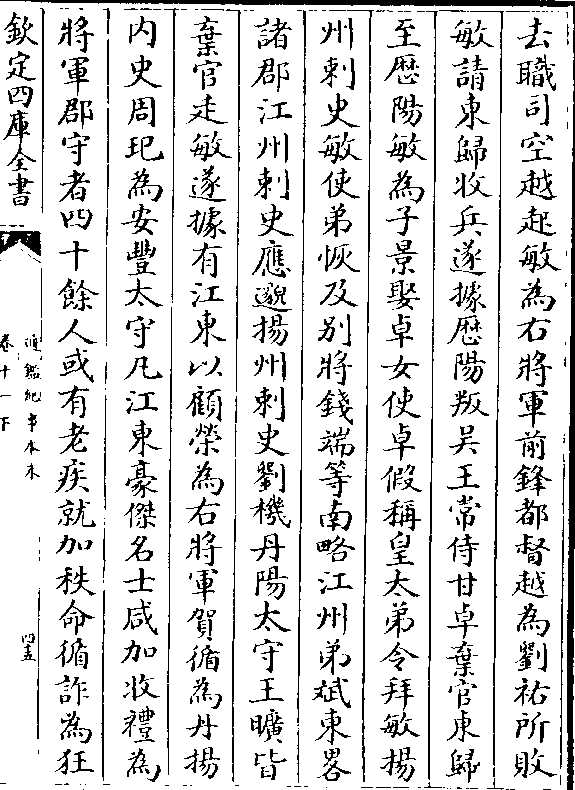 去職司空越起敏為右將軍前鋒都督越為劉祐所敗
敏請東歸收兵遂據厯陽叛吴王常侍甘卓棄官東歸
至厯陽敏為子景娶卓女使卓假稱皇太弟令拜敏揚
州刺史敏使弟恢及别將錢端等南略江州弟斌東畧
諸郡江州刺史應邈揚州刺史劉機丹陽太守王曠皆
棄官走敏遂據有江東以顧榮為右將軍賀循為丹揚
内史周玘為安豐太守凡江東豪傑名士咸加收禮為
將軍郡守者四十餘人或有老疾就加秩命循詐為狂
欽定四庫全書
通鑑紀事本末
卷十一下
四五